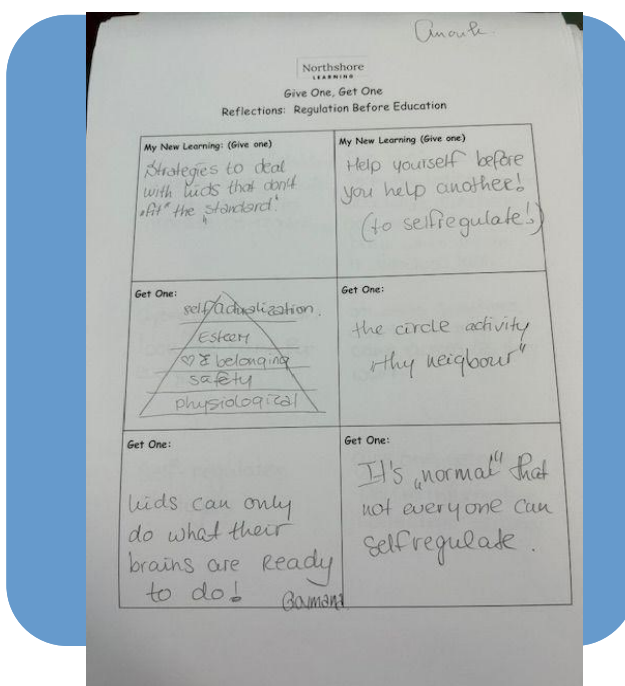 Anouk
Northshore
LEARNING
Give One, Get One
Reflections: Regulation Before Education
My New Learning: (Give one)
Strategies to deal
with kids that don't
„fit" the „standard."
My New Learning (Give one)
Help yourself before
you help another!
(to selfregulate!)
Get One:
self actualization.
Esteem
♡ & belonging
safety
physiological
Get One:
the circle activity
„thy neigbour"
Get One:
kids can only
do what their
brains are Ready
to do!
Get One:
It's „normal" that
not everyone can
selfregulate.